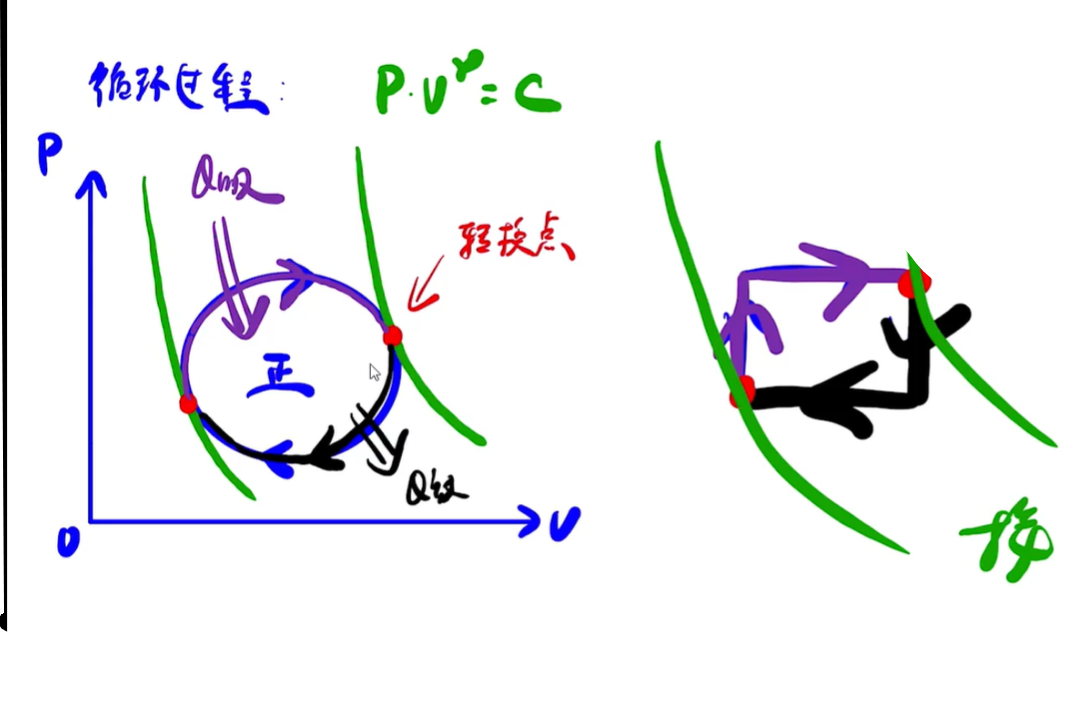 循环过程:
P·V^γ=C
P
Q吸
转换点
正
Q放
O
V